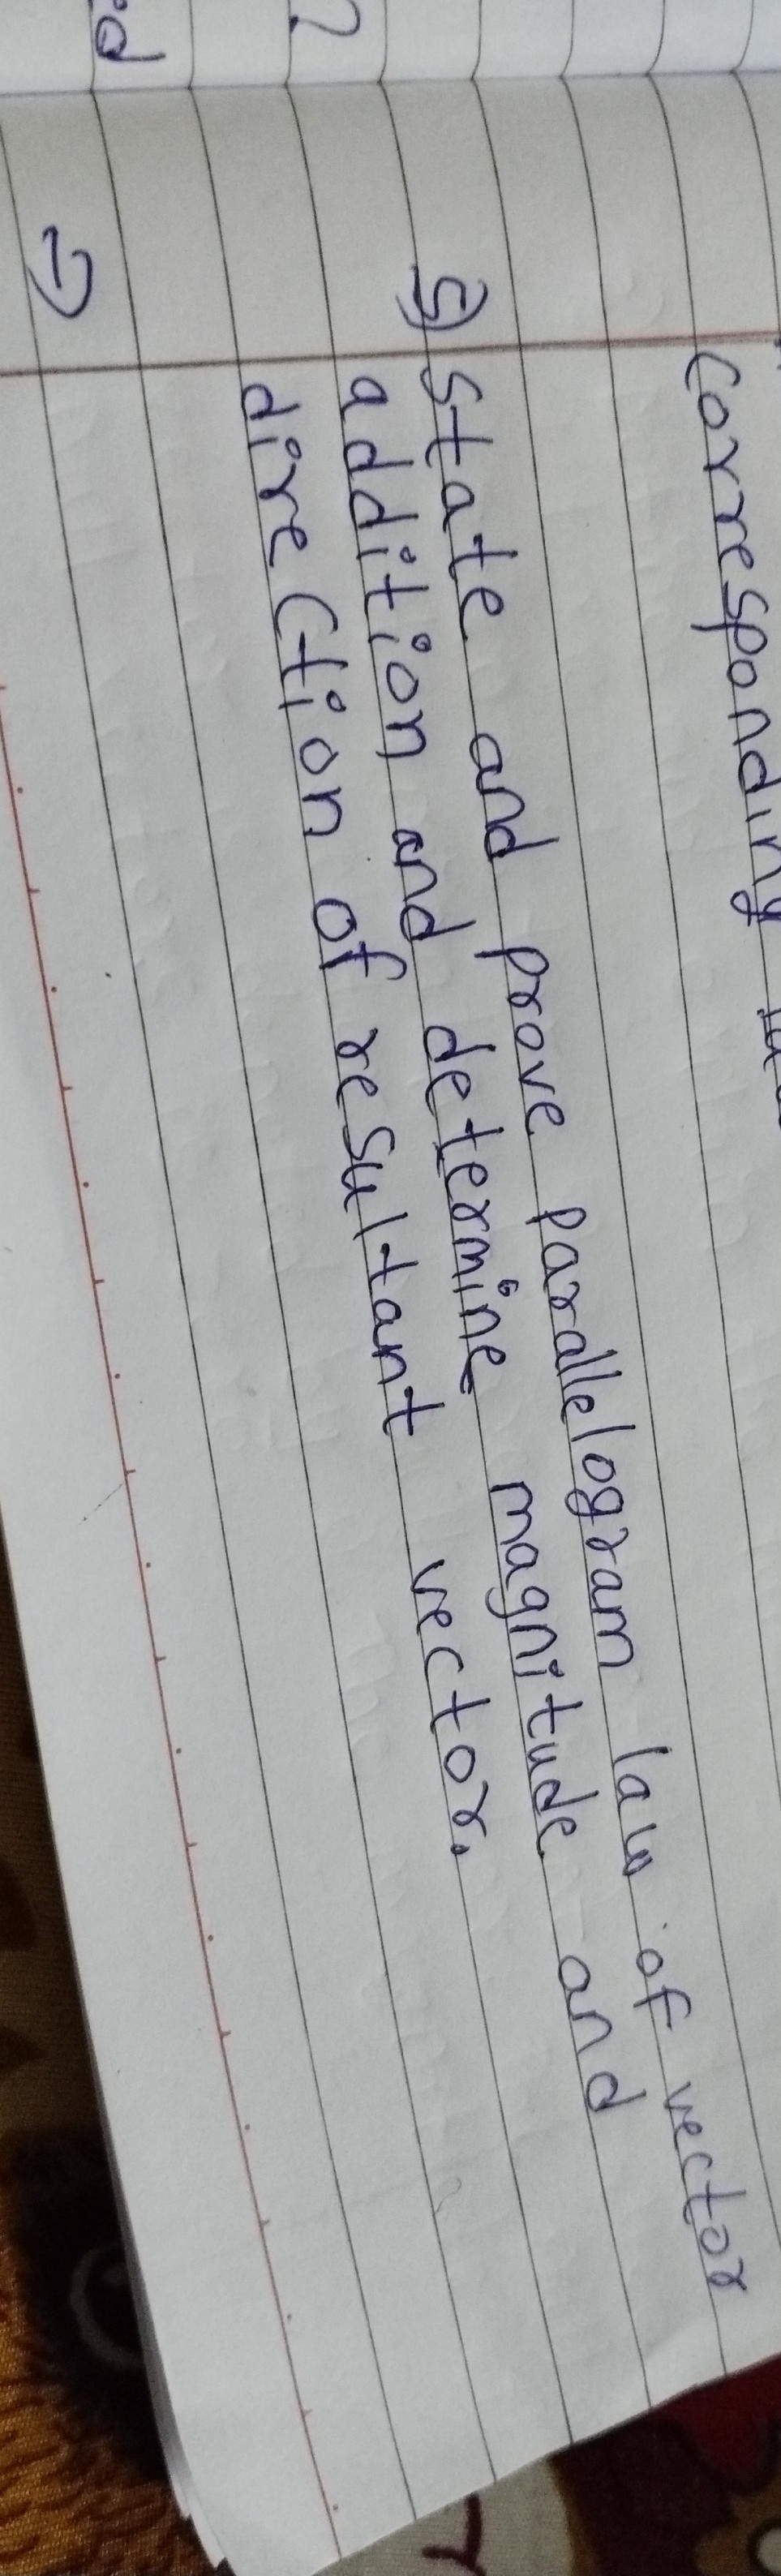 corresponding
5) state and prove parallelogram law of vector
addition and determine magnitude and
direction of resultant vector.